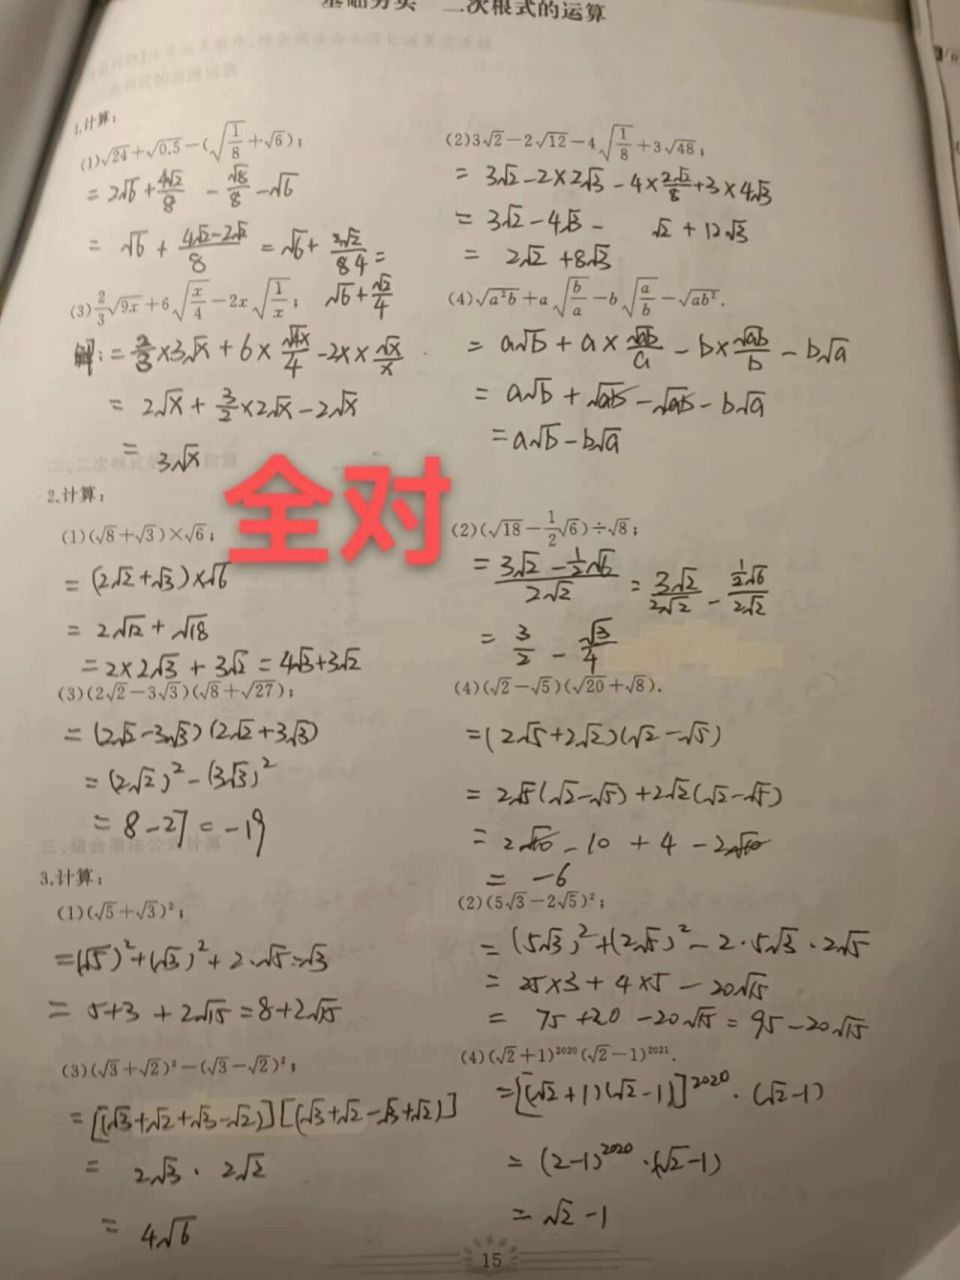 二次根式的运算
1.计算：
(1)√24+√0.5-(√(1/8)+√6)；
=2√6+4√2/8-√8/8-√6
=√6+(4√2-2√2)/8=√6+2√2/84=
√6+√2/4
(2)3√2-2√12-4√(1/8)+3√48；
=3√2-2×2√3-4×2√2/8+3×4√3
=3√2-4√3-√2+12√3
=2√2+8√3
(3)2/3√9x+6√(x/4)-2x√(1/x)；
解：=2/3×3√x+6×√4x/4-2x×√x/x
=2√x+3/2×2√x-2√x
=3√x
(4)√a²b+a√(b/a)-b√(a/b)-√ab².
=a√b+a×√ab/a-b×√ab/b-b√a
=a√b+√ab-√ab-b√a
=a√b-b√a
全对
2.计算：
(1)(√8+√3)×√6；
=(2√2+√3)×√6
=2√12+√18
=2×2√3+3√2=4√3+3√2
(2)(√18-1/2√6)÷√8；
=(3√2-1/2√6)/2√2=3√2/2√2-1/2√6/2√2
=3/2-√3/4
(3)(2√2-3√3)(√8+√27)；
=(2√2-3√3)(2√2+3√3)
=(2√2)²-(3√3)²
=8-27=-19
(4)(√2-√5)(√20+√8).
=(2√5+2√2)(√2-√5)
=2√5(√2-√5)+2√2(√2-√5)
=2√10-10+4-2√10
=-6
3.计算：
(1)(√5+√3)²；
=(√5)²+(√3)²+2·√5·√3
=5+3+2√15=8+2√15
(2)(5√3-2√5)²；
=(5√3)²+(2√5)²-2·5√3·2√5
=25×3+4×5-20√15
=75+20-20√15=95-20√15
(3)(√3+√2)²-(√3-√2)²；
=[(√3+√2+√3-√2)][(√3+√2-√3+√2)]
=2√3·2√2
=4√6
(4)(√2+1)²⁰²⁰(√2-1)²⁰²¹.
=[(√2+1)(√2-1)]²⁰²⁰·(√2-1)
=(2-1)²⁰²⁰·(√2-1)
=√2-1
15